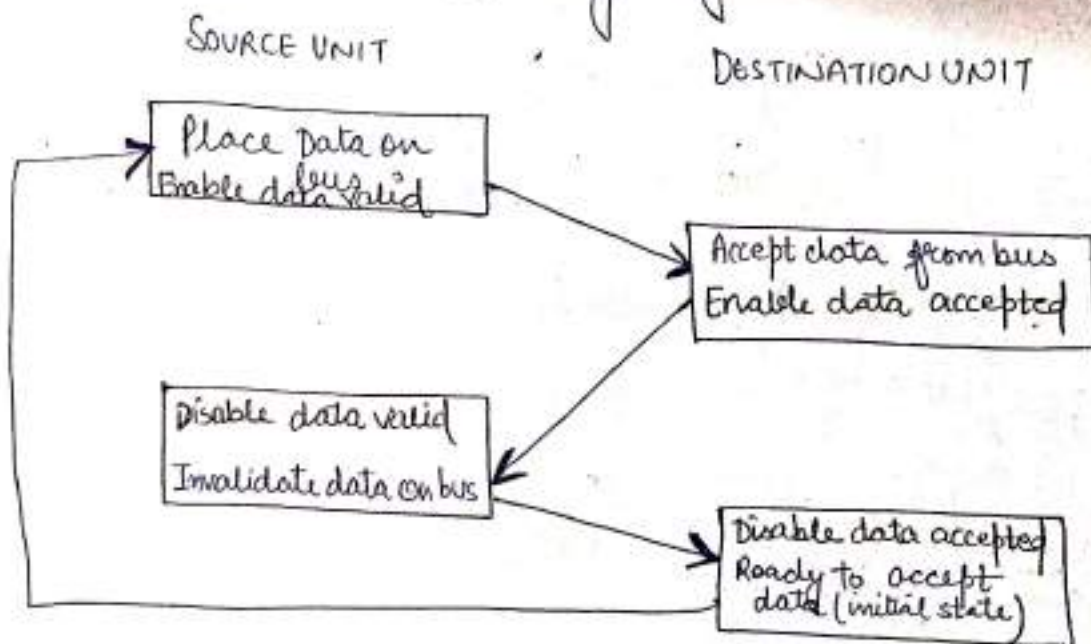 SOURCE UNIT
DESTINATION UNIT
Place Data on
bus
Enable data valid
Accept data from bus
Enable data accepted
Disable data valid
Invalidate data on bus
Disable data accepted
Ready to accept
data (initial state)